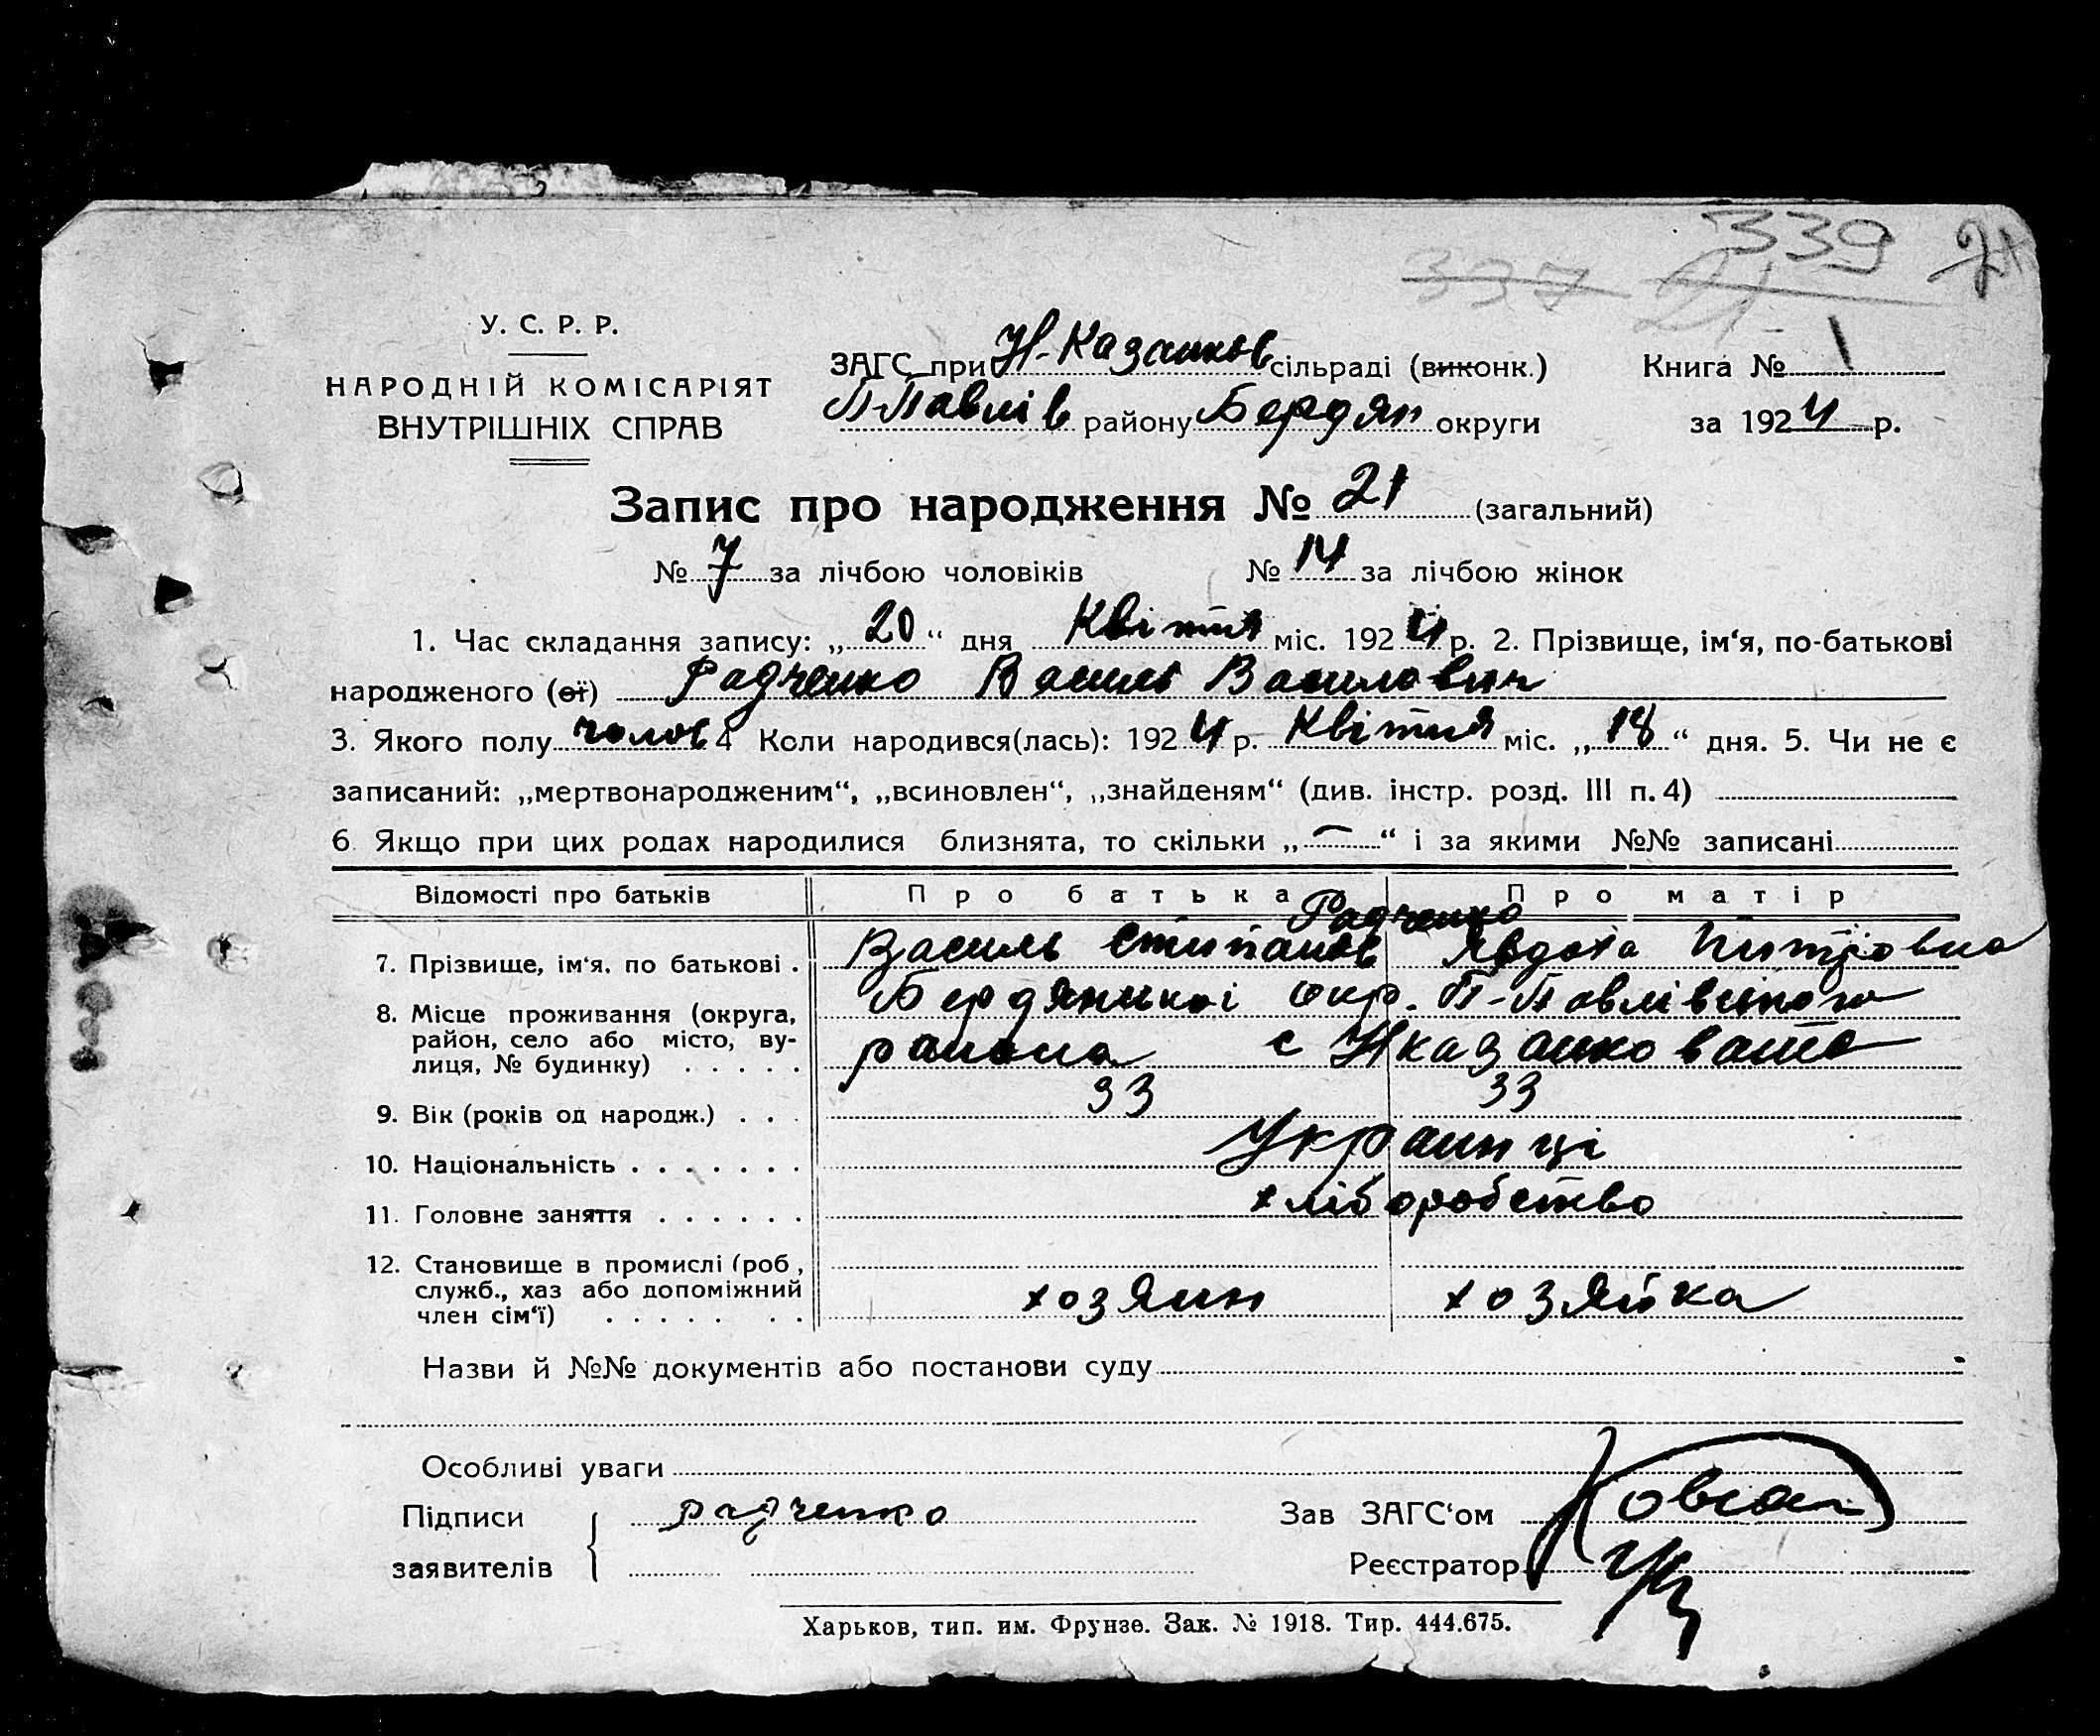 339 21
337 21
У. С. Р. Р.
НАРОДНІЙ КОМІСАРІЯТ
ВНУТРІШНІХ СПРАВ
ЗАГС при Н-Казанков сільраді (виконк.)
П-Павлів району Бердян округи
Книга № 1
за 1924 р.
Запис про народження № 21 (загальний)
№ 7 за лічбою чоловіків № 14 за лічбою жінок
1. Час складання запису: „20“ дня Квітня міс. 1924 р. 2. Прізвище, ім‘я, по-батькові
народженого (ої) Радченко Василь Василович
3. Якого полу чолов 4 Коли народився(лась): 1924 р. Квітня міс. „18“ дня. 5. Чи не є
записаний: „мертвонародженим“, „всиновлен“, „знайденям“ (див. інстр. розд. III п. 4)
6. Якщо при цих родах народилися близнята, то скільки „—“ і за якими №№ записані
Відомості про батьків Про батька Про матір
Радченко
7. Прізвище, ім‘я, по батькові . Василь Стипанов Явдоха Питровна
8. Місце проживання (округа, Бердянської окр. П-Павлівського
район, село або місто, ву- района с Нказанковата
лиця, № будинку) . . . . .
9. Вік (років од народж.) . . . 33 33
10. Національність . . . . . . . Украинці
11. Головне заняття . . . . . . хліборобство
12. Становище в промислі (роб ,
служб., хаз або допоміжний хозяин хозяйка
член сім‘ї) . . . . . . .
Назви й №№ документів або постанови суду
Особливі уваги
Підписи Радченко Зав ЗАГС‘ом
заявителів Реєстратор
Харьков, тип. им. Фрунзе. Зак. № 1918. Тир. 444.675.